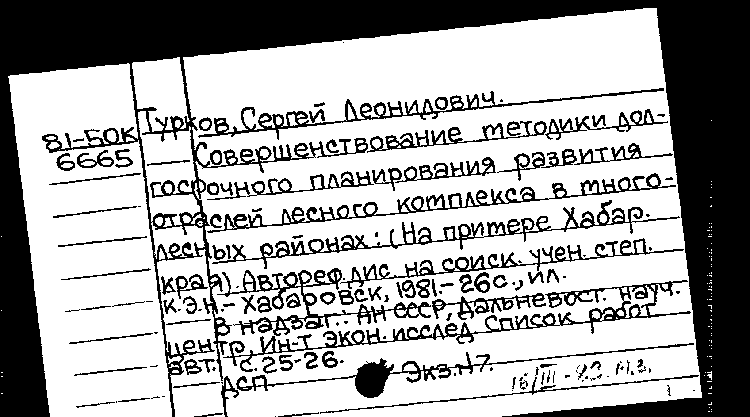 81-БОК
6665
Турков, Сергей Леонидович.
Совершенствование методики дол-
госрочного планирования развития
отраслей лесного комплекса в много-
лесных районах: (На примере Хабар.
края) Автореф. дис. на соиск. учен. степ.
к.э.н. - Хабаровск, 1981. - 26 с., ил.
В надзаг.: АН СССР, Дальневост. науч.
центр, Ин-т экон. исслед. Список работ
авт.: с. 25-26.
ДСП.
Экз. №7.
16/III - 83